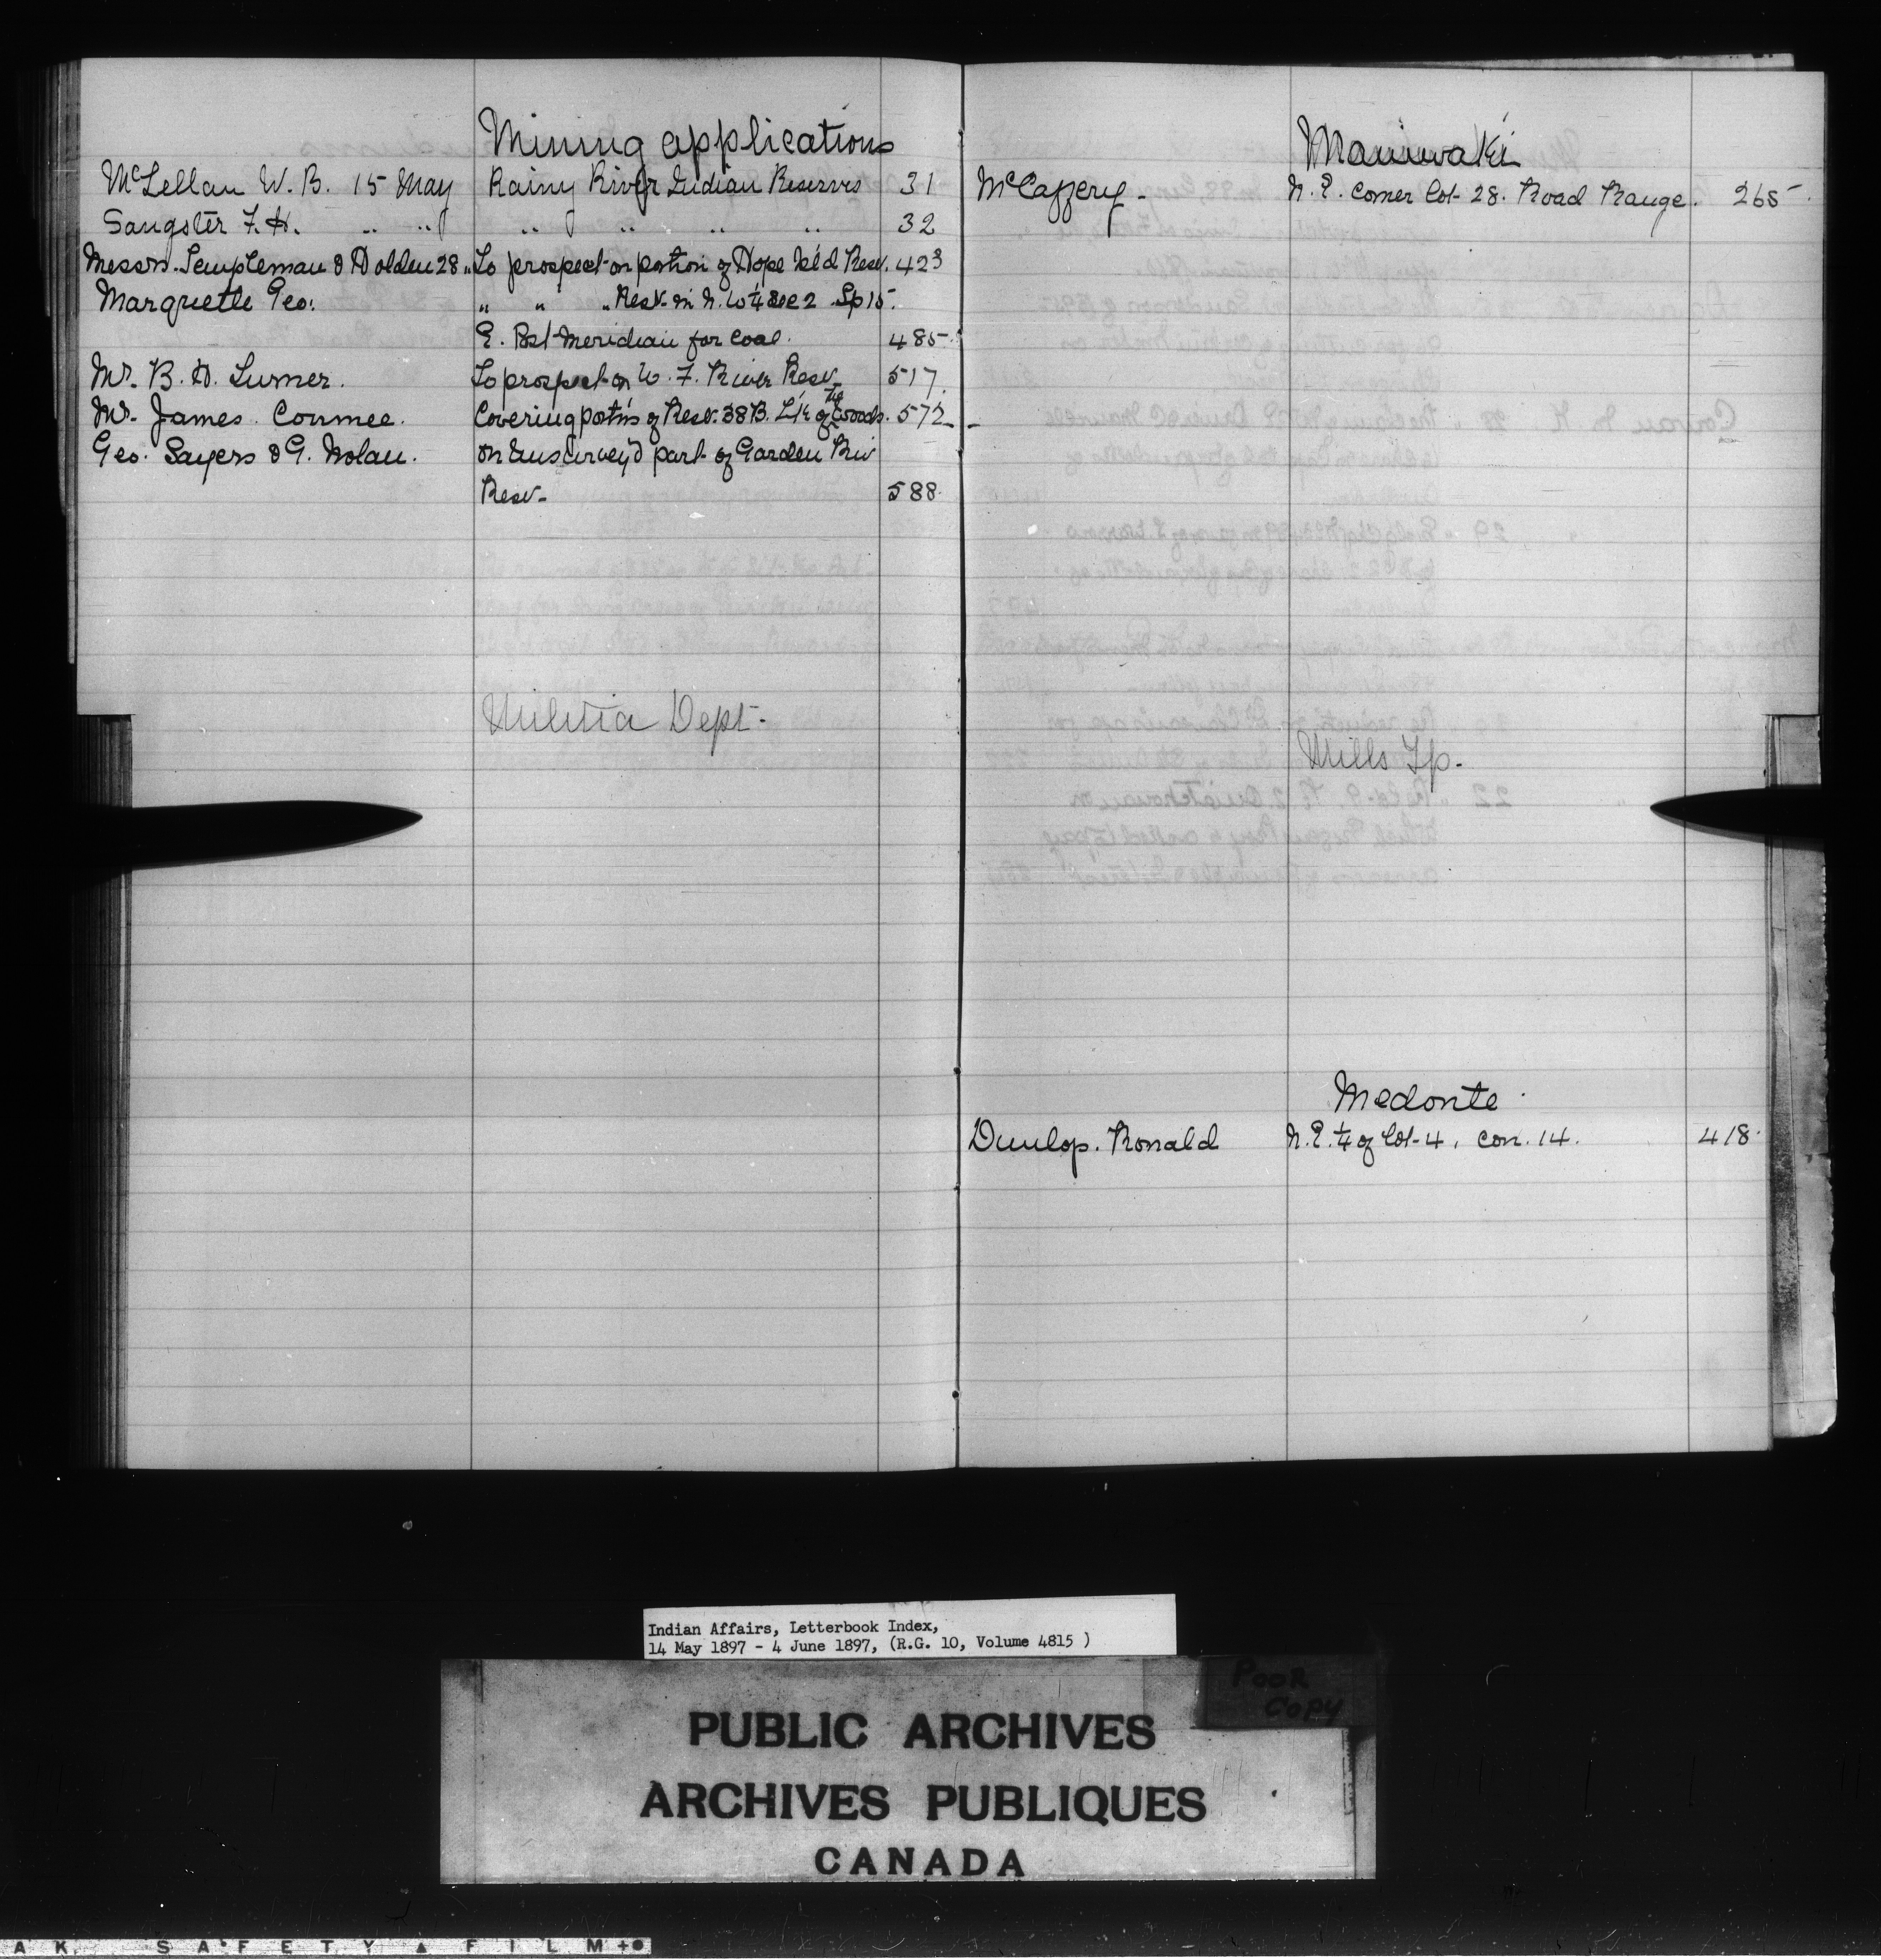 Mining applications
McLellan W. B. 15 May Rainy River Indian Reserves 31
Sangster F. H. " " " " " " 32
Messrs. Templeman & Dolden 28 " To prospect on portion of Hope Isl'd Resv. 423
Marquette Geo. " " " Resv. in N. W 1/4 Sec 2 Tp 15
E. Pst Meridian for Coal. 485
Mr. B. H. Turner. To prospect on W. F. River Resv. 517
Mr. James Conmee. Covering port'ns of Resv. 38B. L'k of the Woods. 572
Geo. Sayers & G. Nolan. On Unsurvey'd part of Garden Riv
Resv. 588
Militia Dept.
Maniwaki
McCaffery. N. E. Corner lot 28. Road Range. 265
Mills Tp.
Medonte
Dunlop. Ronald N. E. 1/4 of lot 4, Con. 14. 418
Indian Affairs, Letterbook Index,
14 May 1897 - 4 June 1897, (R.G. 10, Volume 4815 )
POOR
COPY
PUBLIC ARCHIVES
ARCHIVES PUBLIQUES
CANADA
A K SAFETY ▲ FILM +●